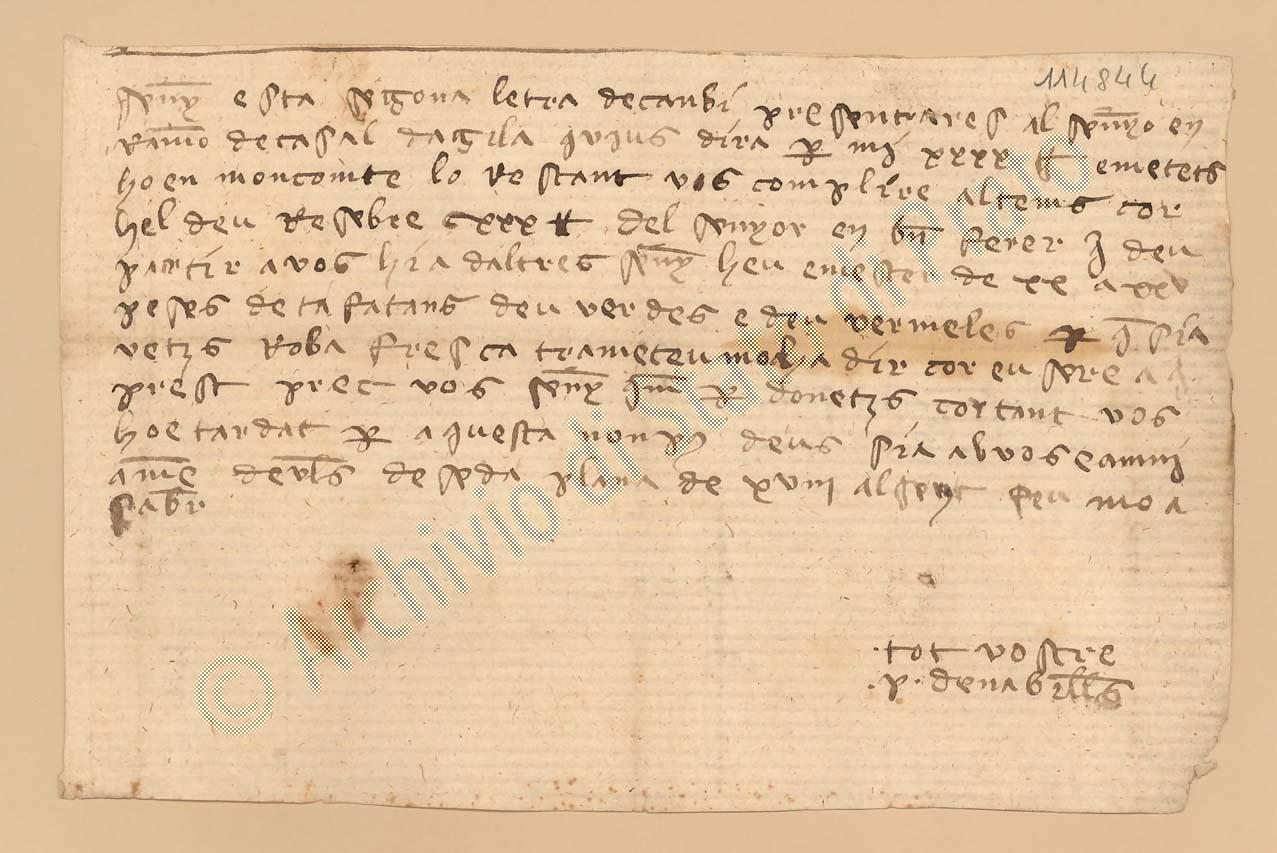 114844
seny esta segona letra decanbi presentrares al senyo en
Ramo decasal dagila qujus dira per mi xxxx emetets
hoen moncomte lo Restant vos complire altems cor
hel deu Resebre cxxx del senyor en bn ferer q deu
partir avos hira daltres seny heu emester de xx a xxv
peses de tafatans deu verdes e deu vermeles per q sia
vetzs Roba fresca trameteu moha dir cor eu sere a
prest prec vos seny qm per donetzs cortant vos
hoe tardat per aquesta non pus deus sia ab vos e ammj
ame de vels de seda plana de xviii algens feu mo a
saber
tot vostre
.p. denabrells
© Archivio di Stato di Prato